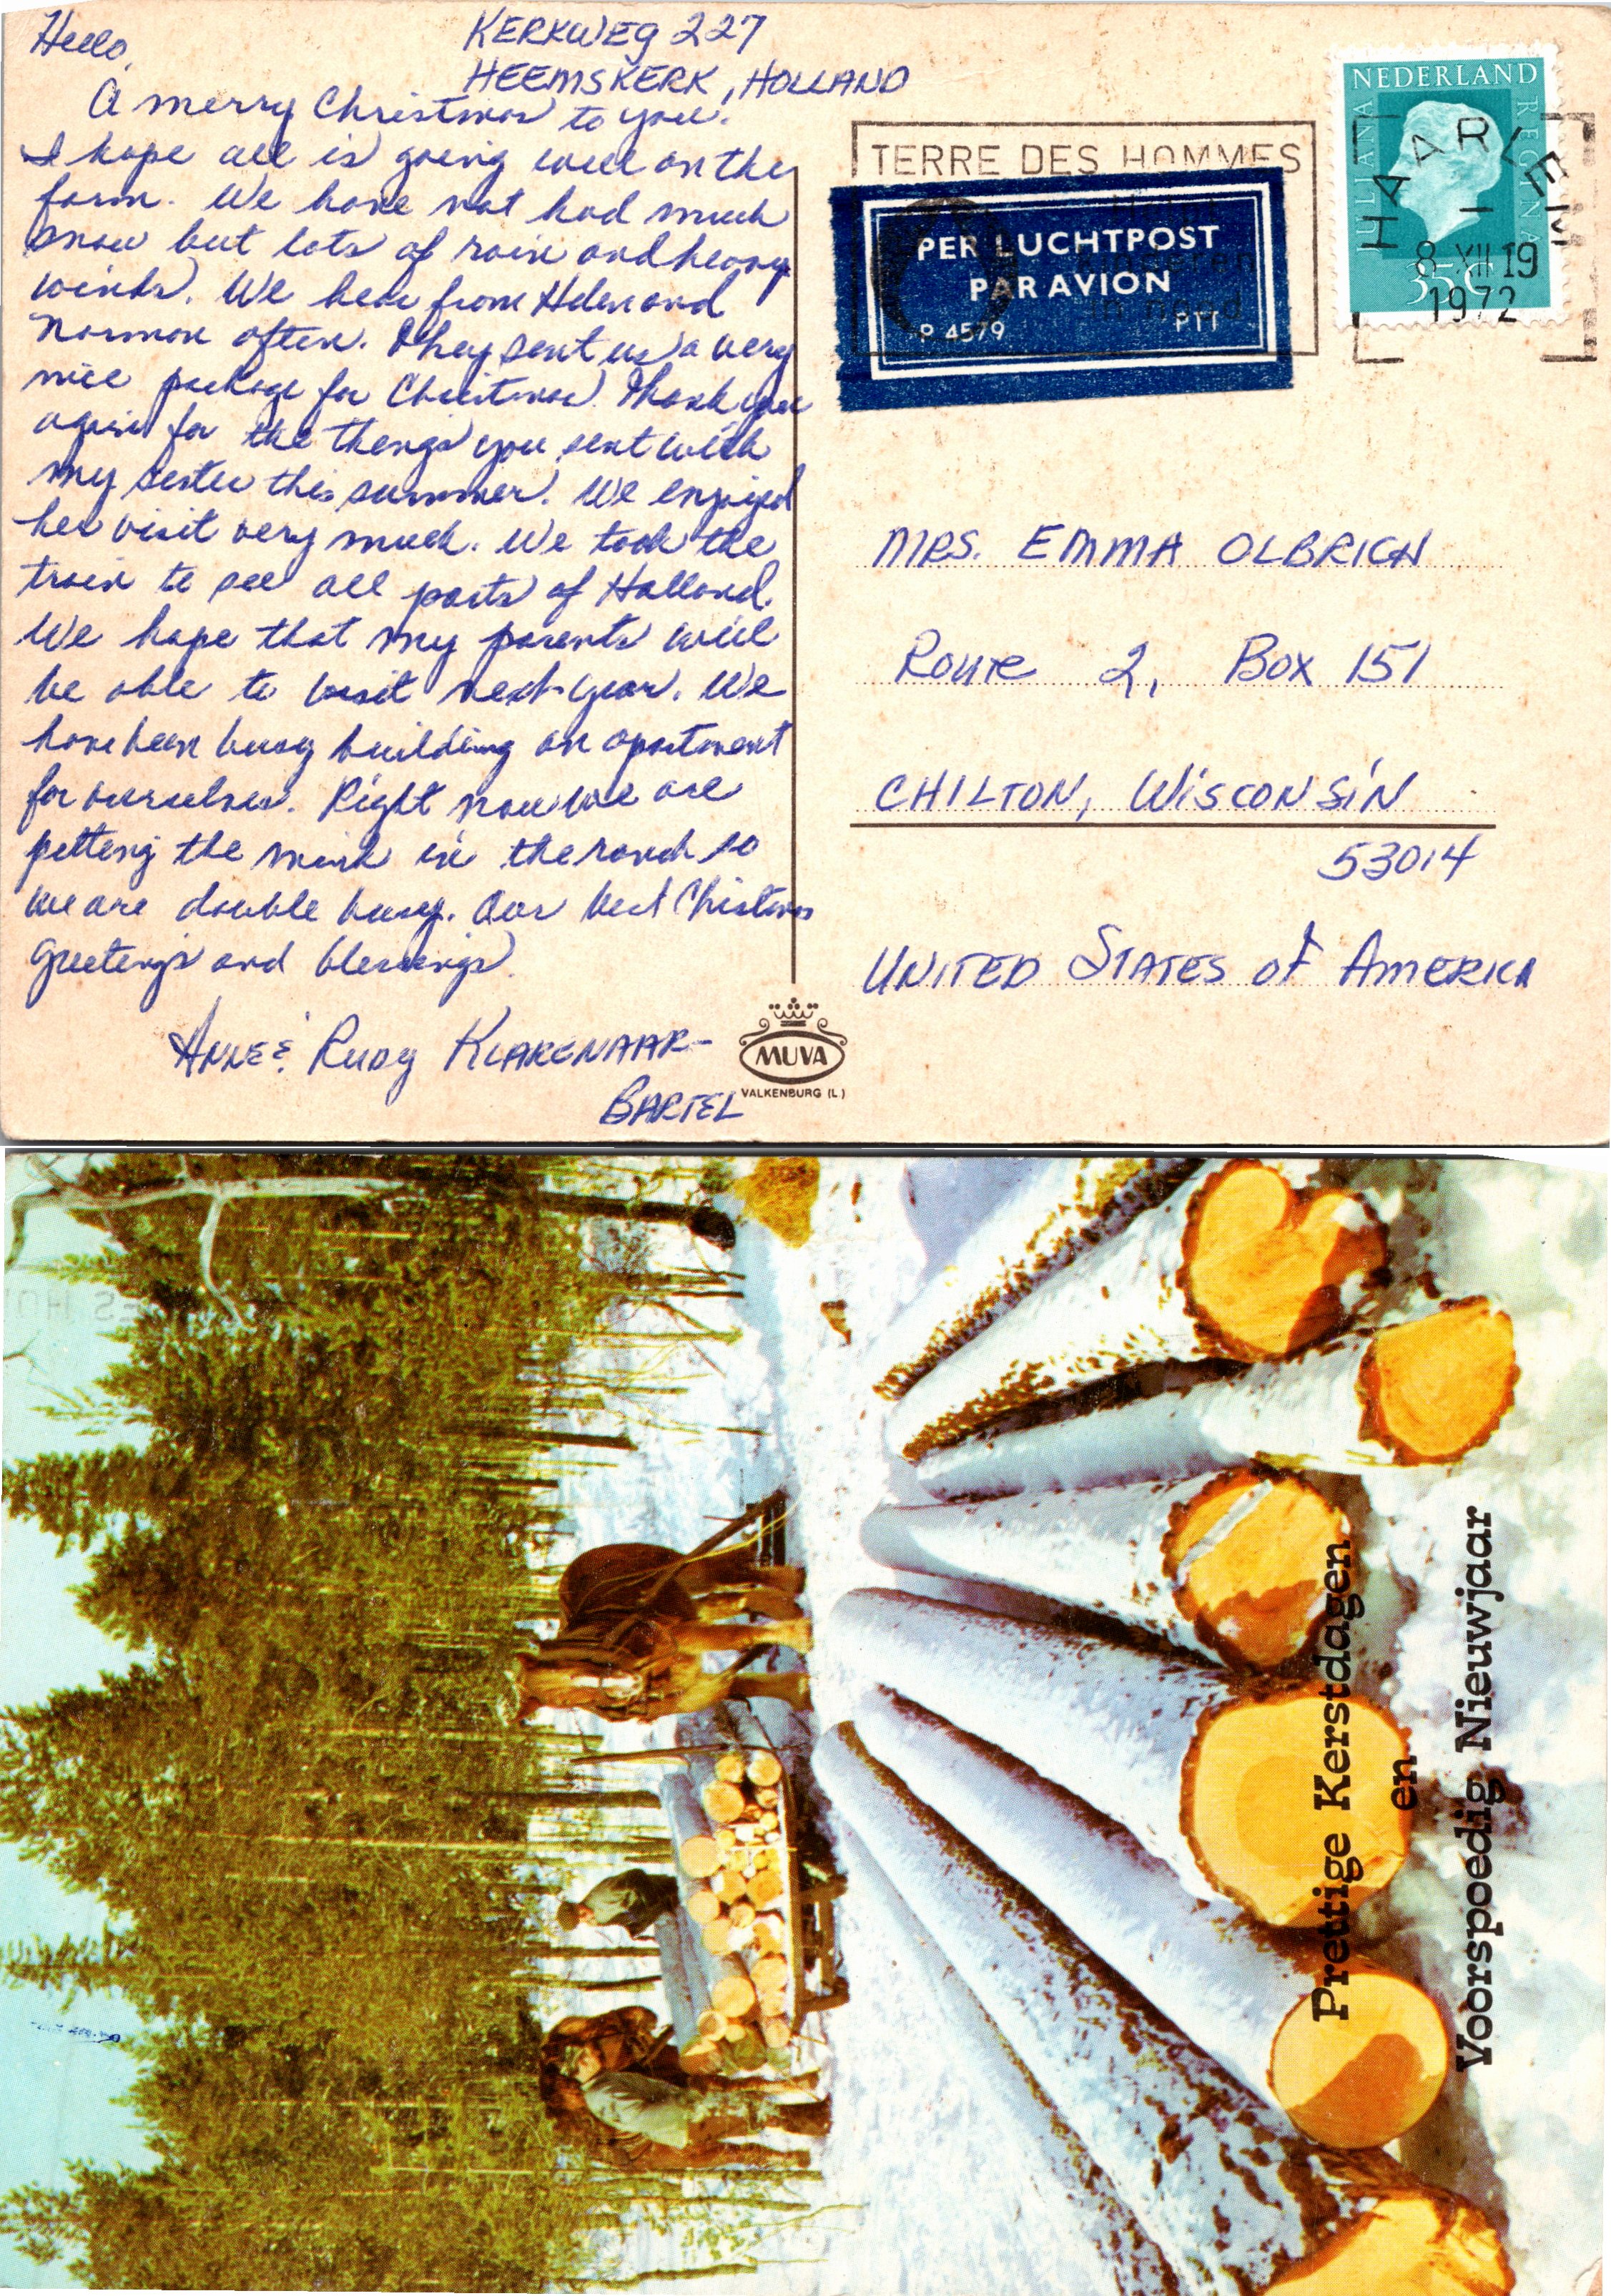 Hello,
KERKWEG 227
HEEMSKERK, HOLLAND
A merry Christmas to you.
I hope all is going well on the
farm. We have not had much
snow but lots of rain and heavy
winds. We hear from Helen and
Norman often. They sent us a very
nice package for Christmas. Thank you
again for the things you sent with
my sister this summer. We enjoyed
her visit very much. We took the
train to see all parts of Holland.
We hope that my parents will
be able to visit next year. We
have been busy building an apartment
for ourselves. Right now we are
pelting the mink in the ranch so
we are double busy. Our best Christmas
greetings and blessings.
ANNE & RUDY KLARENAAR-
BARTEL
NEDERLAND
JULIANA REGINA
35c
HAARLEM
1
8 XII 19
1972
TERRE DES HOMMES
in nood
PER LUCHTPOST
PAR AVION
P 4579 PTT
MRS. EMMA OLBRICH
ROUTE 2, BOX 151
CHILTON, WISCONSIN
53014
UNITED STATES OF AMERICA
MUVA
VALKENBURG (L)
Prettige Kerstdagen
en
Voorspoedig Nieuwjaar